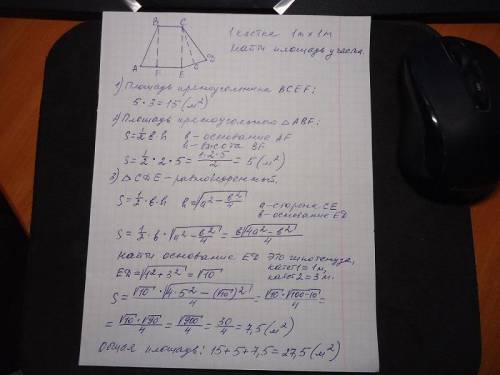 B C
A F E D
1 клетка 1м x 1м
Найти площадь участка.
1) Площадь прямоугольника BCEF:
5·3=15(м²)
2) Площадь прямоугольного △ABF:
S=½ в·h в – основание AF
h – высота BF
S=½·2·5=1·2·5/2=5(м²)
3) △CDE – равнобедренный.
S=½·в·h h=√(a²-в²/4) a – сторона CE
в – основание ED
S=½·в·√(a²-в²/4)=в√(4a²-в²)/4
Найти основание ED это гипотенуза,
ED=√(1²+3²)=√10 катет1=1м,
катет2=3м.
S=√10·√(4·5²-(√10)²)/4=√10·√(100-10)/4=
=√10·√90/4=√900/4=30/4=7,5(м²)
Общая площадь: 15+5+7,5=27,5(м²)